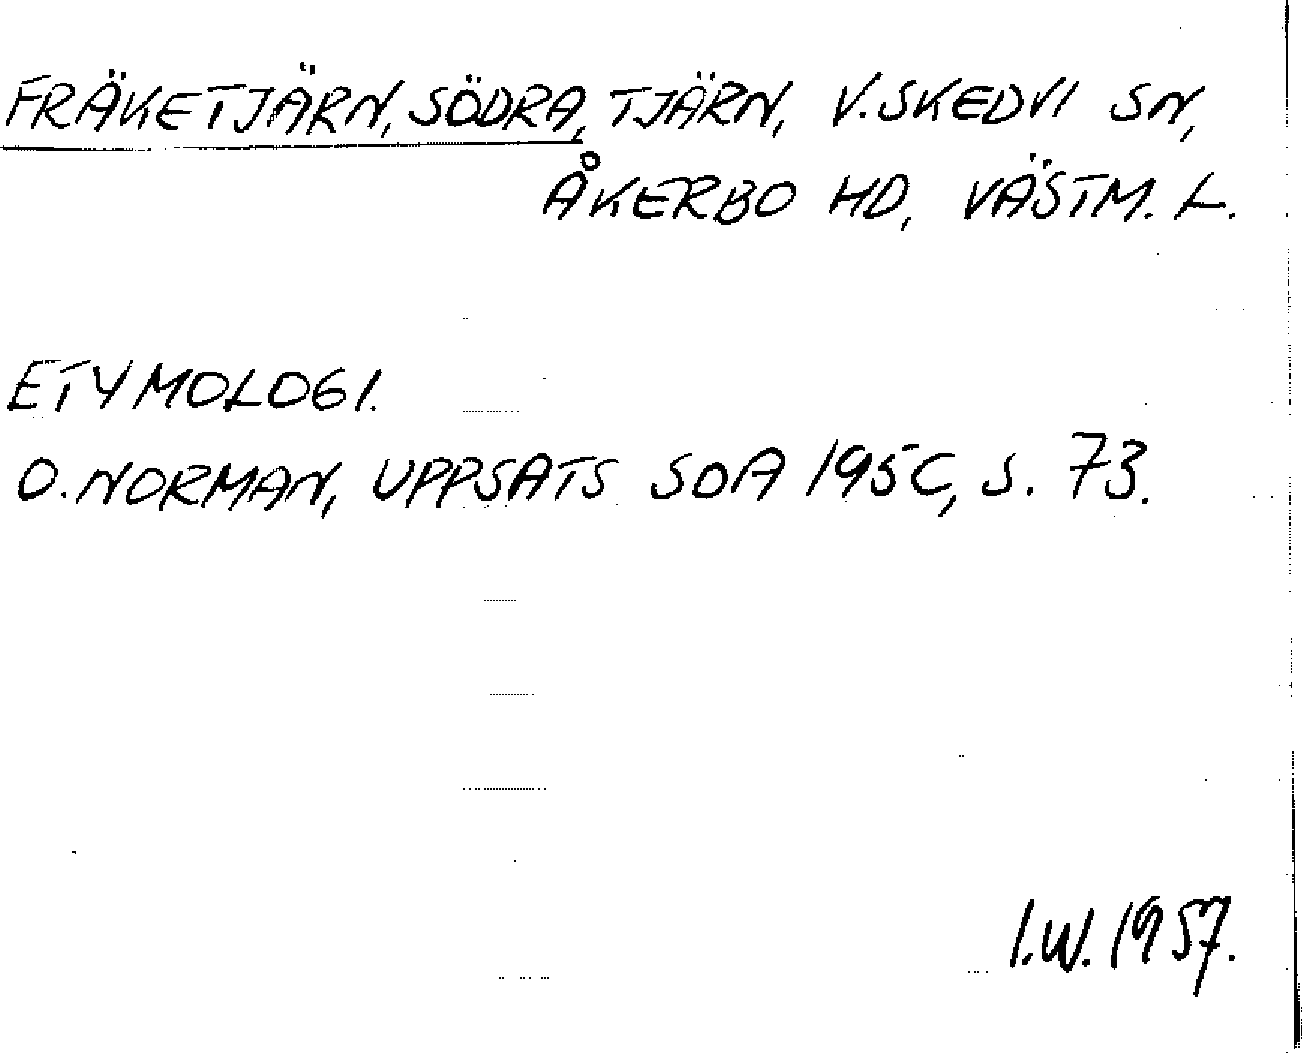 FRÄKETJÄRN, SÖDRA, TJÄRN, V. SKEDVI SN,
ÅKERBO HD, VÄSTM. L.
ETYMOLOGI.
O. NORMAN, UPPSATS SOA 1950, S. 73.
I.W. 1957.